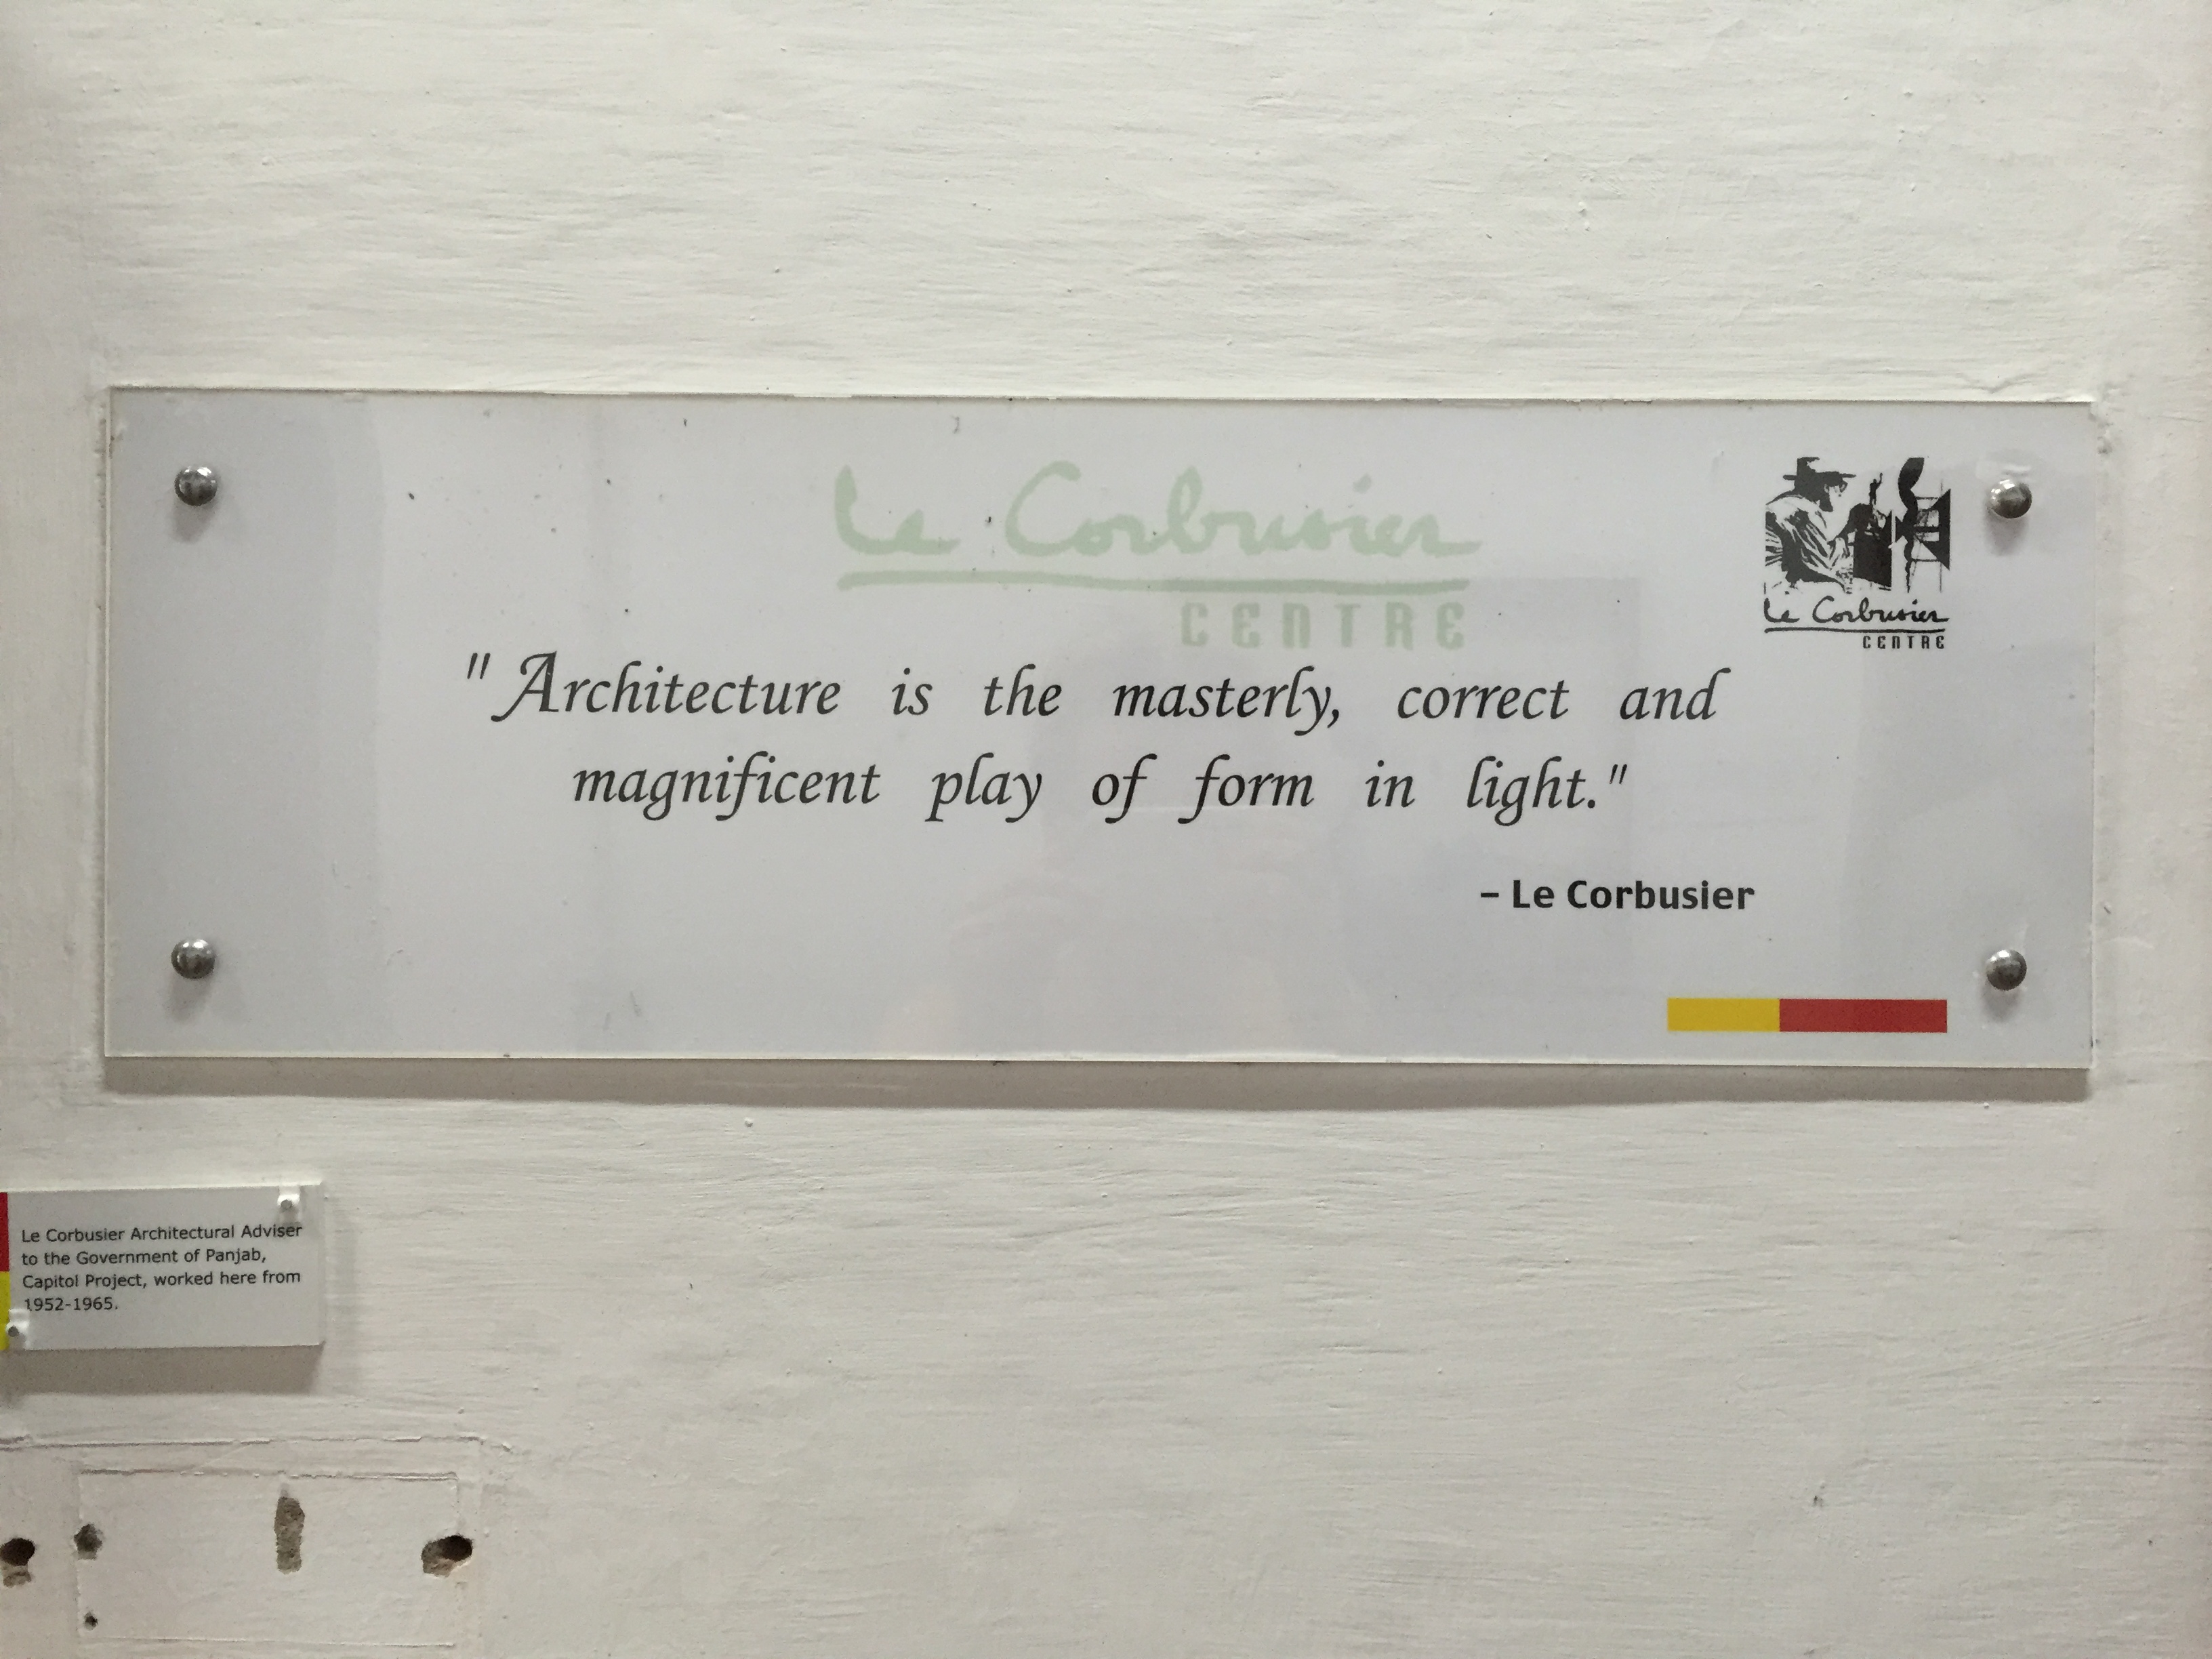 Le Corbusier
CENTRE
Le Corbusier
CENTRE
" Architecture is the masterly, correct and
magnificent play of form in light."
– Le Corbusier
Le Corbusier Architectural Adviser
to the Government of Panjab,
Capitol Project, worked here from
1952-1965.